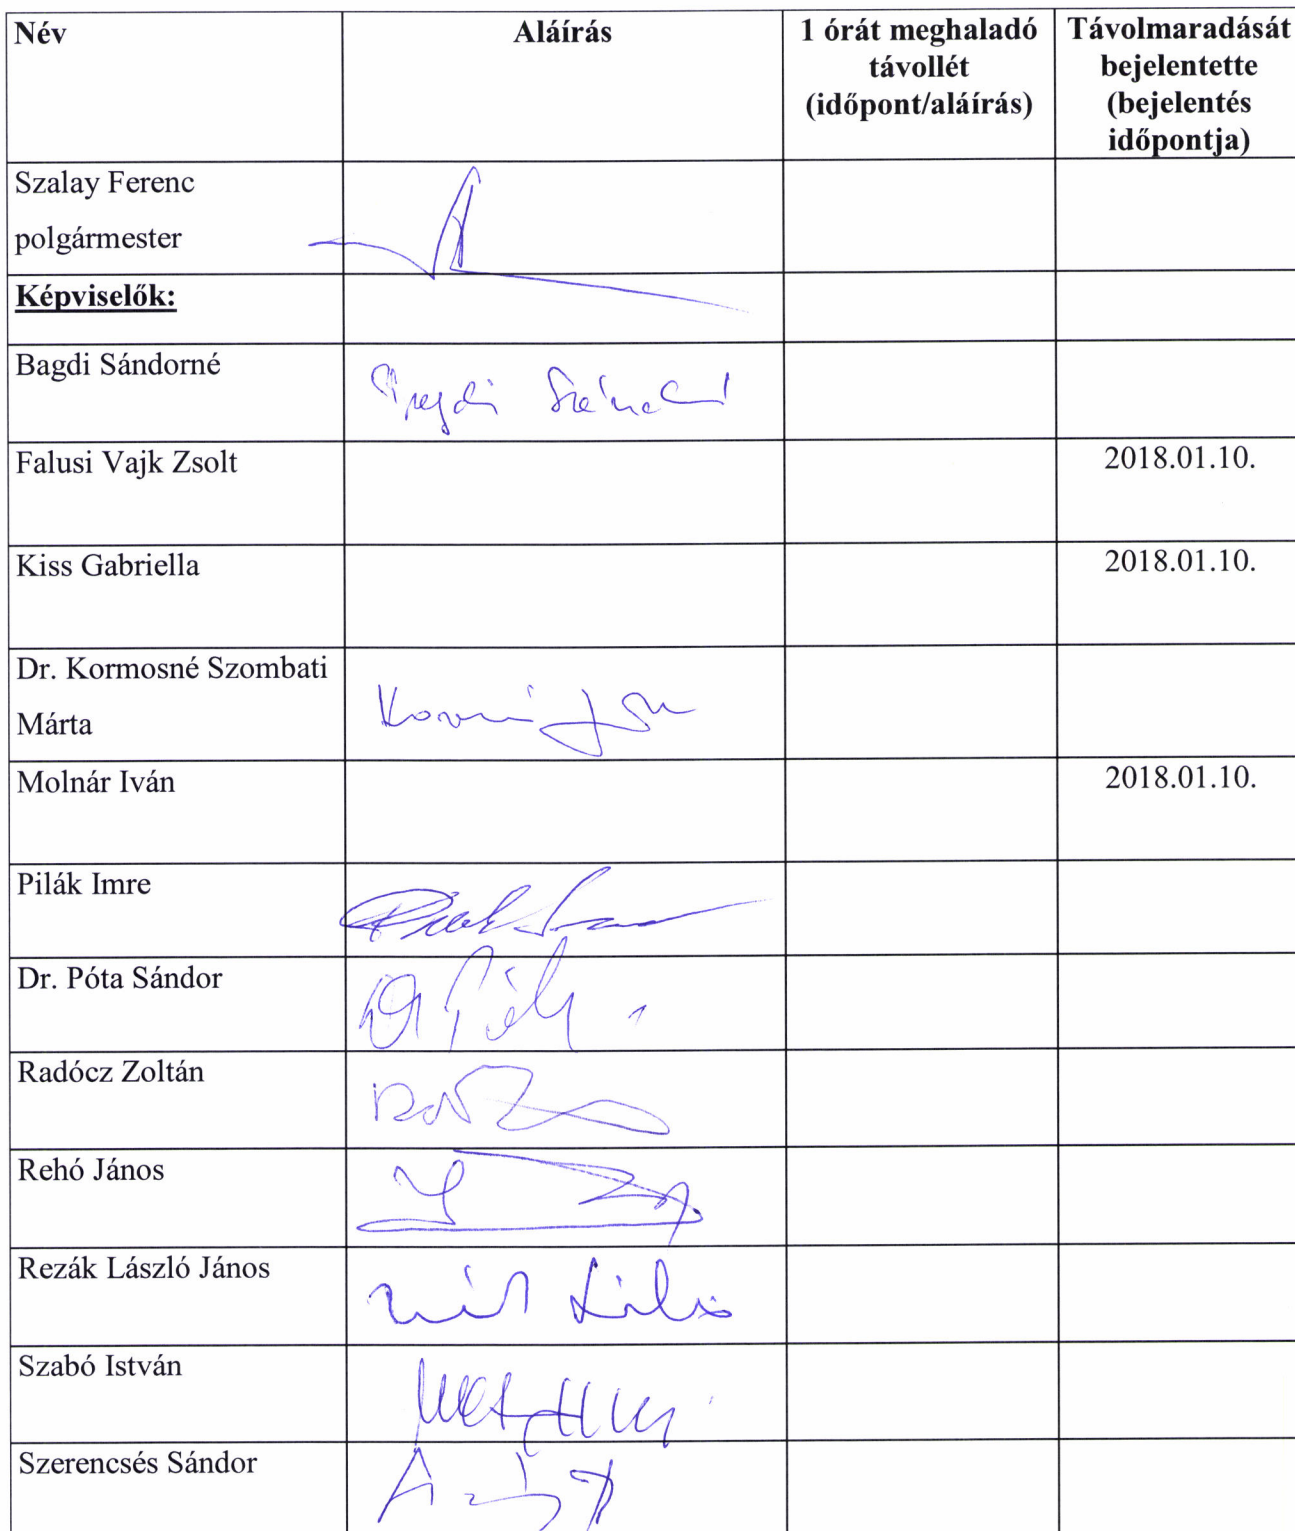 Név
Aláírás
1 órát meghaladó
távollét
(időpont/aláírás)
Távolmaradását
bejelentette
(bejelentés
időpontja)
Szalay Ferenc
polgármester
Képviselők:
Bagdi Sándorné
Falusi Vajk Zsolt
2018.01.10.
Kiss Gabriella
2018.01.10.
Dr. Kormosné Szombati
Márta
Molnár Iván
2018.01.10.
Pilák Imre
Dr. Póta Sándor
Radócz Zoltán
Rehó János
Rezák László János
Szabó István
Szerencsés Sándor